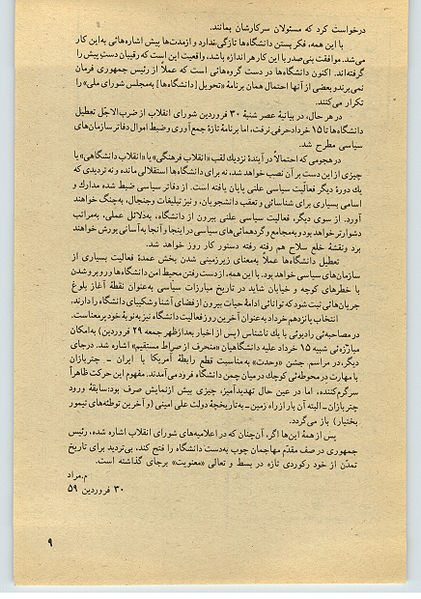 درخواست کرد که مسئولان سرکارشان بمانند.
با این همه، فکر بستن دانشگاه‌ها تازگی ندارد و ازمدت‌ها پیش اشاره‌هائی به‌این کار
می‌شد. موافقت بنی‌صدر با این کار هر اندازه باشد، واقعیت این است که رقیبان دست پیش را
گرفته‌اند. اکنون دانشگاه‌ها در دست گروه‌هائی است که عملاً از رئیس جمهوری فرمان
نمی‌برند و بعضی از آنها احتمال همان برنامهٔ «تحویل (دانشگاه‌ها) به‌مجلس شورای ملی» را
تکرار می‌کنند.
در هر حال، در بیانیهٔ عصر شنبهٔ ۳۰ فروردین شورای انقلاب از ضرب‌الاجل تعطیل
دانشگاه‌ها تا ۱۵ خرداد حرفی نرفت، اما برنامهٔ تازهٔ جمع‌آوری و ضبط اموال دفاتر سازمان‌های
سیاسی مطرح شد.
در هجومی که احتمالاً در آیندهٔ نزدیك لقب «انقلاب فرهنگی» یا «انقلاب دانشگاهی» یا
چیزی از این دست بر آن نصب خواهد شد، نه برای دانشگاه‌ها استقلالی مانده و نه تردیدی که
یك دورهٔ دیگر فعالیت سیاسی علنی پایان یافته است. از دفاتر سیاسی ضبط شده مدارك و
اسامی بسیاری برای شناسائی و تعقیب دانشجویان، و نیز تبلیغات و جنجال، به‌چنگ خواهند
آورد. از سوی دیگر، فعالیت سیاسی علنی بیرون از دانشگاه، به‌دلائل عملی، به‌مراتب
دشوارتر خواهد بود و به‌مجامع و گردهمائی‌های سیاسی در اینجا و آنجا به‌آسانی یورش خواهند
برد و نقشهٔ خلع سلاح هم رفته رفته دستور کار روز خواهد شد.
تعطیل دانشگاه‌ها عملاً به‌معنای زیرزمینی شدن بخش عمدهٔ فعالیت بسیاری از
سازمان‌های سیاسی خواهد بود. با این همه، از دست رفتن محیط امن دانشگاه‌ها و روبرو شدن
با خطرهای کوچه و خیابان شاید در تاریخ مبارزات سیاسی به‌عنوان نقطهٔ آغاز بلوغ
جریان‌هائی ثبت شود که توانائی ادامهٔ حیات بیرون از فضای آشنا و شکیبای دانشگاه را دارند.
انتخاب پانزدهم خرداد به‌عنوان آخرین روز فعالیت دانشگاه نیز به نوبهٔ خود پرمعناست.
در مصاحبه‌ئی رادیوئی با یك ناشناس (پس از اخبار بعدازظهر جمعه ۲۹ فروردین) به‌امکان
مبارزه‌ئی شبیه ۱۵ خرداد علیه دانشگاهیان «منحرف از صراط مستقیم» اشاره شد. درجای
دیگر، در مراسم. جشن «وحدت» به‌مناسبت قطع رابطهٔ آمریکا با ایران – چتربازان
با مهارت در محوطه‌ئی کوچك در میان چمن دانشگاه فرود می‌آمدند. مفهوم این حرکت ظاهراً
سرگرم‌کننده، اما در عین حال تهدیدآمیز، چیزی بیش ازنمایش صرف بود: سابقهٔ ورود
چتربازان – البته آن بار از راه زمین – به‌تاریخچهٔ دولت علی امینی (و آخرین توطئه‌های تیمور
بختیار) باز می‌گردد.
پس از همهٔ این‌ها اگر، آن‌چنان که در اعلامیه‌های شورای انقلاب اشاره شده، رئیس
جمهوری در صف مقدّم مهاجمان چوب به‌دست دانشگاه را فتح کند، بی‌تردید برای تاریخ
تمدّن از خود رکوردی تازه در بسط و تعالی «معنویت» برجای گذاشته است.
م.مراد
۳۰ فروردین ۵۹
۹